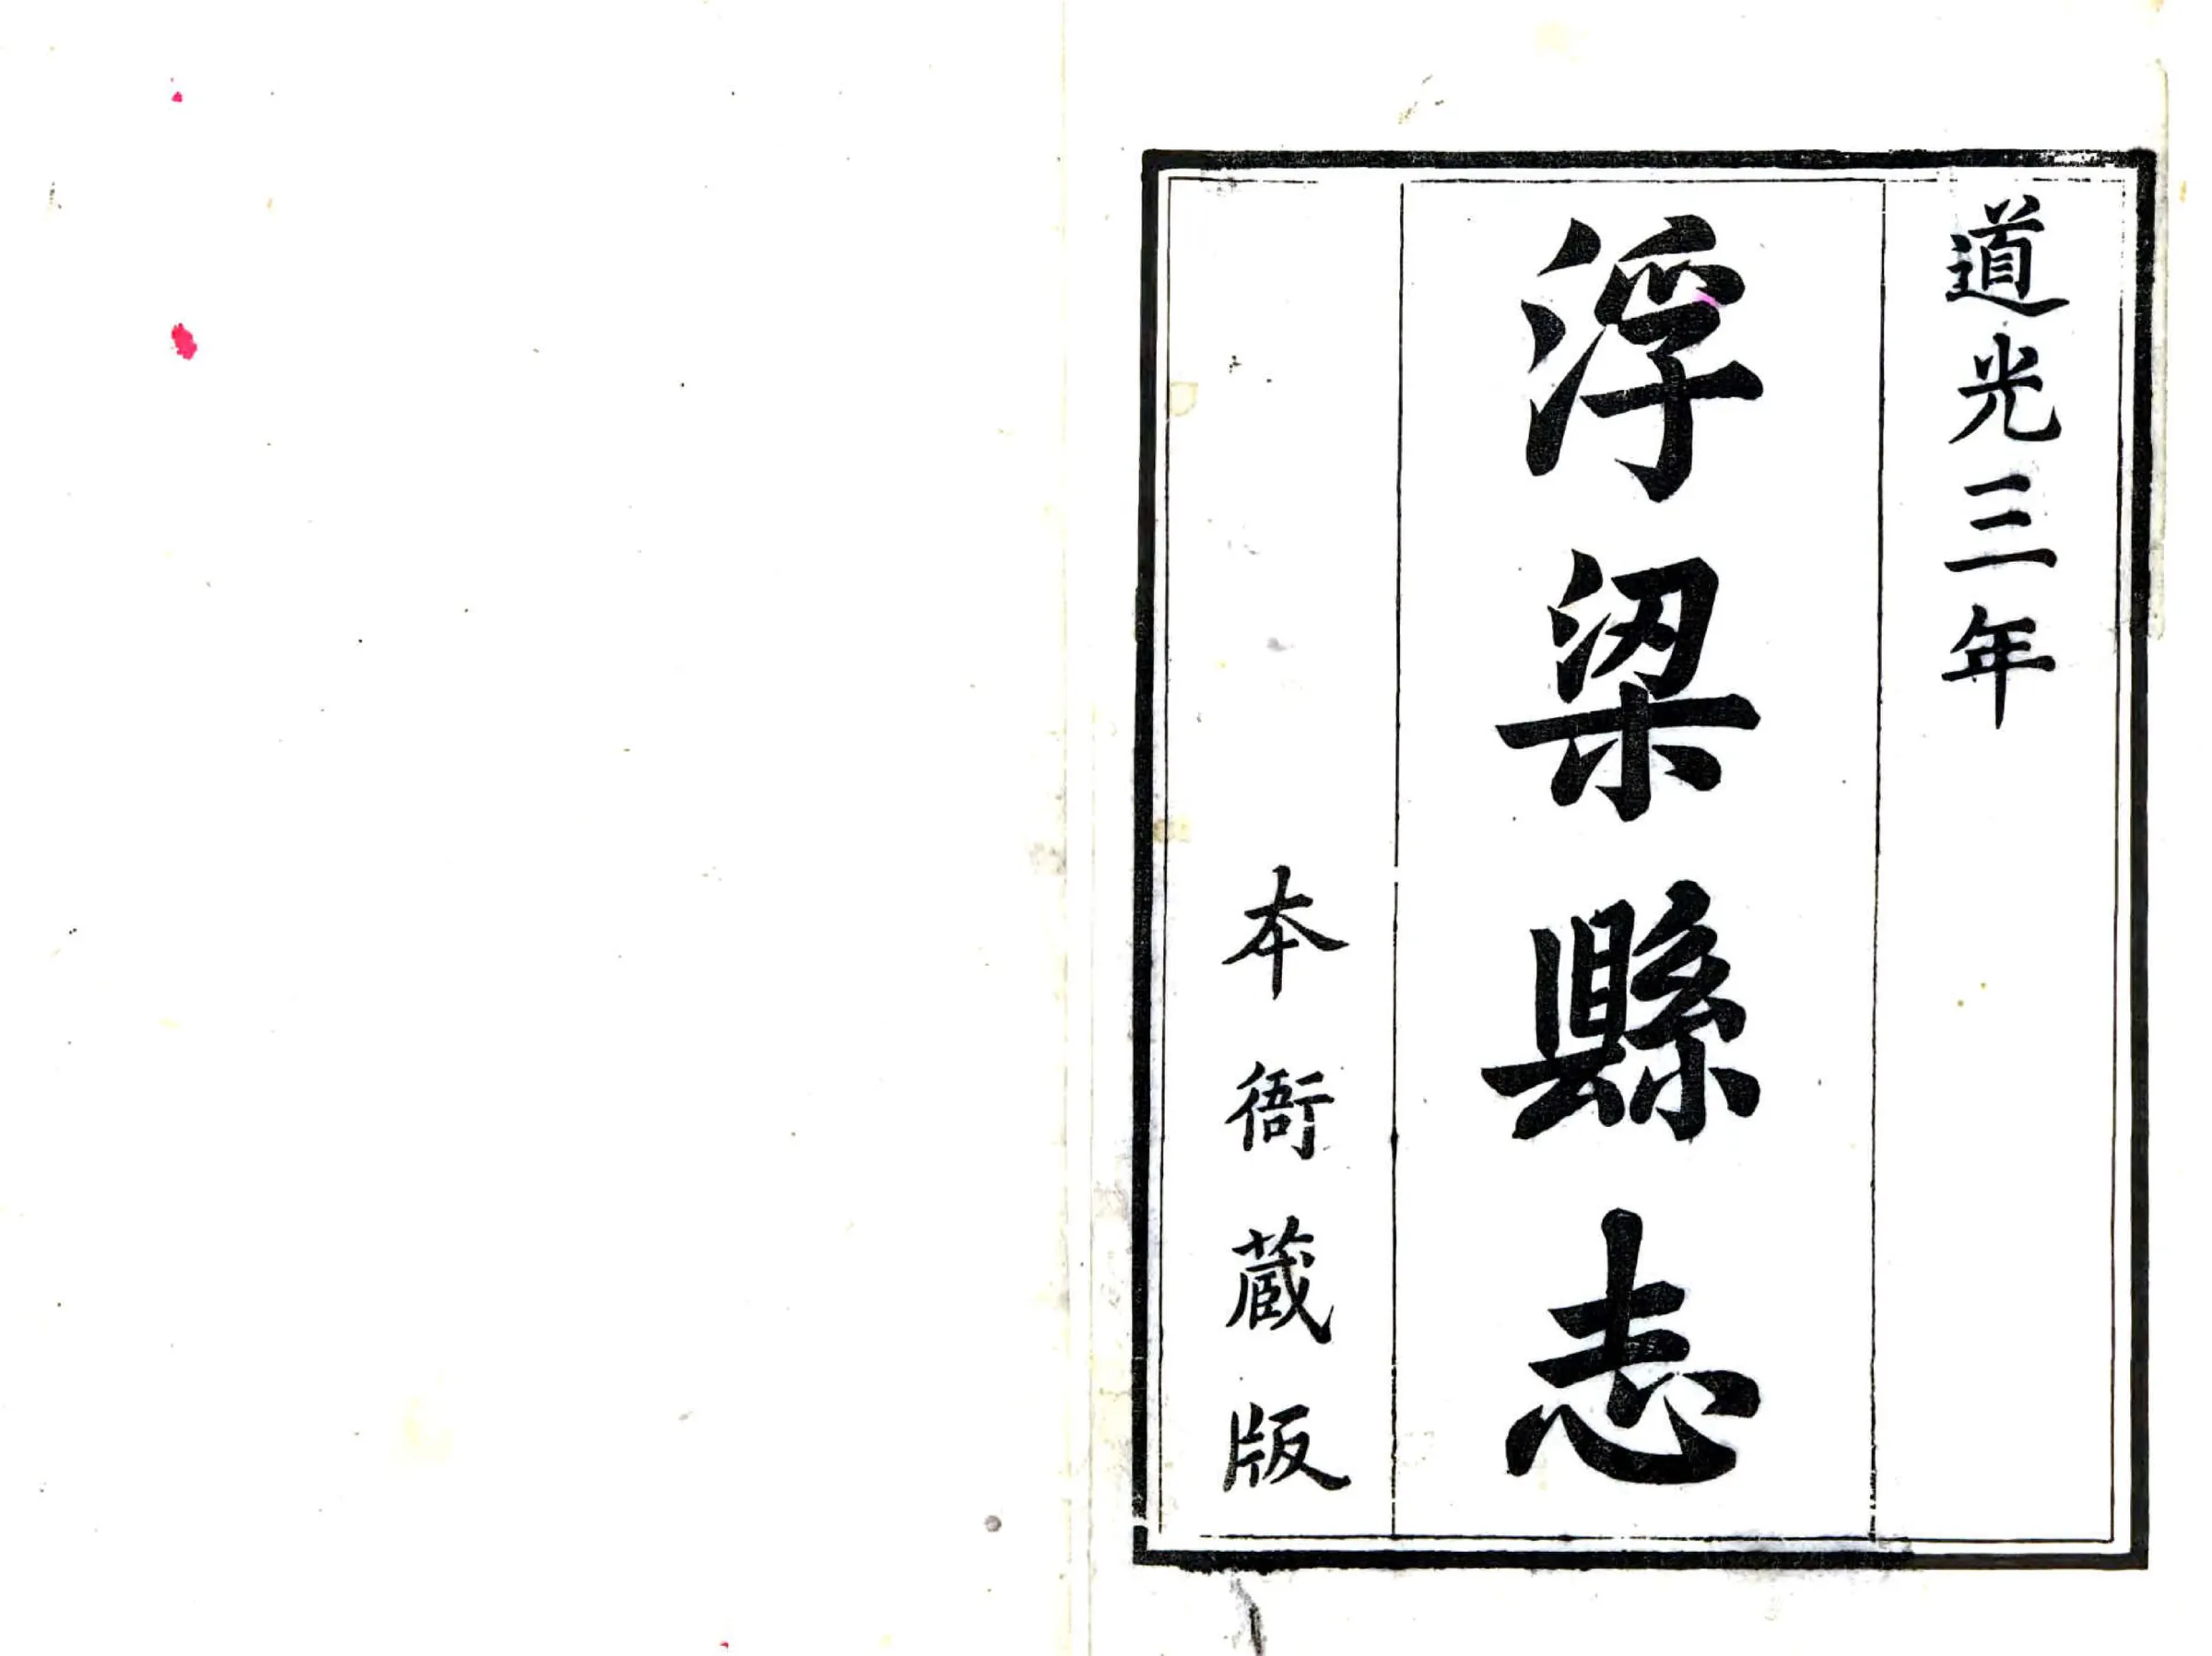 道光三年
浮梁縣志
本衙藏版